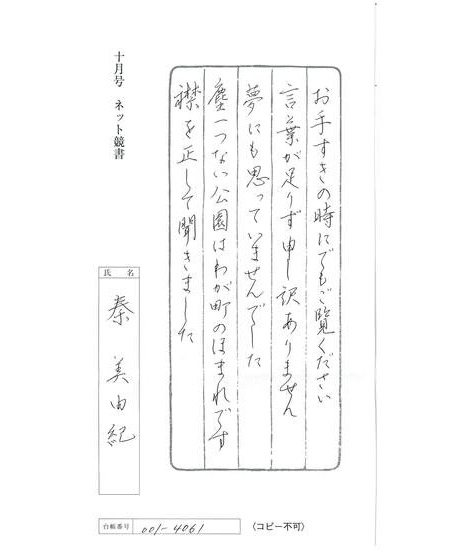 お手すきの時にでもご覧ください
言葉が足りず申し訳ありません
夢にも思っていませんでした
塵一つない公園はわが町のほまれです
襟を正して聞きました
十月号 ネット競書
氏名
秦 美由紀
台帳番号 001-4061
(コピー不可)